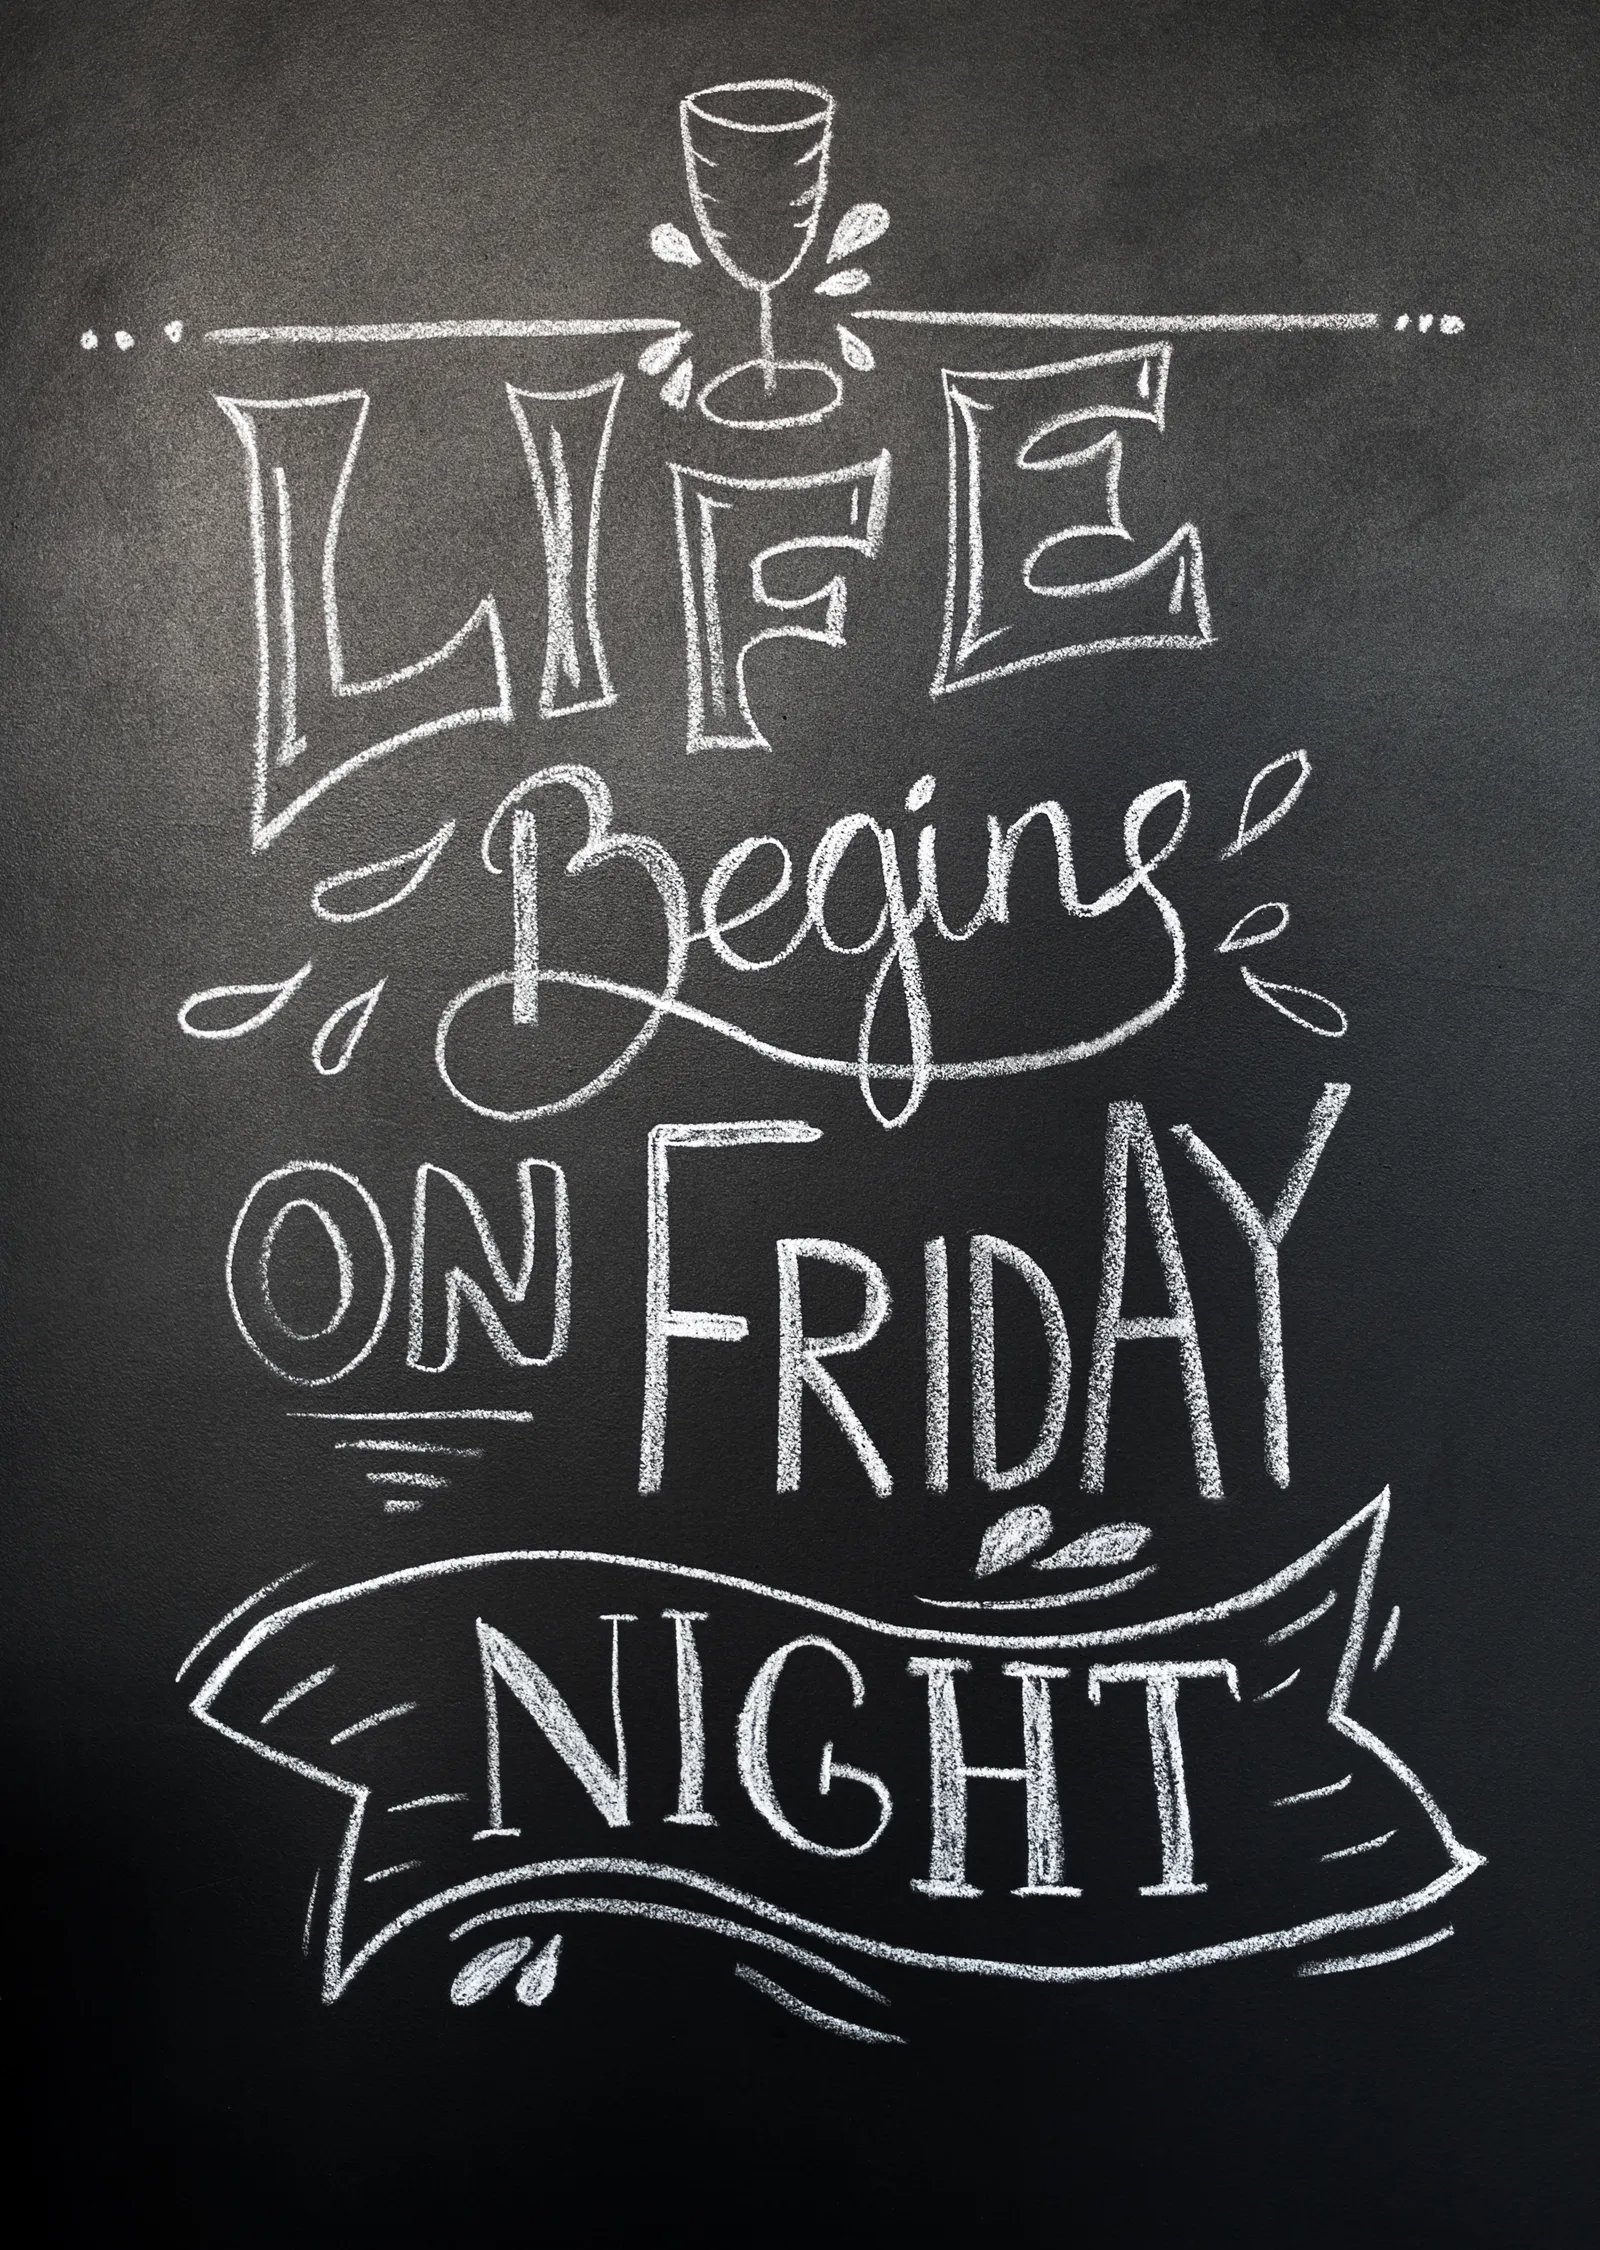 LIFE
Begins
ON FRIDAY
NIGHT